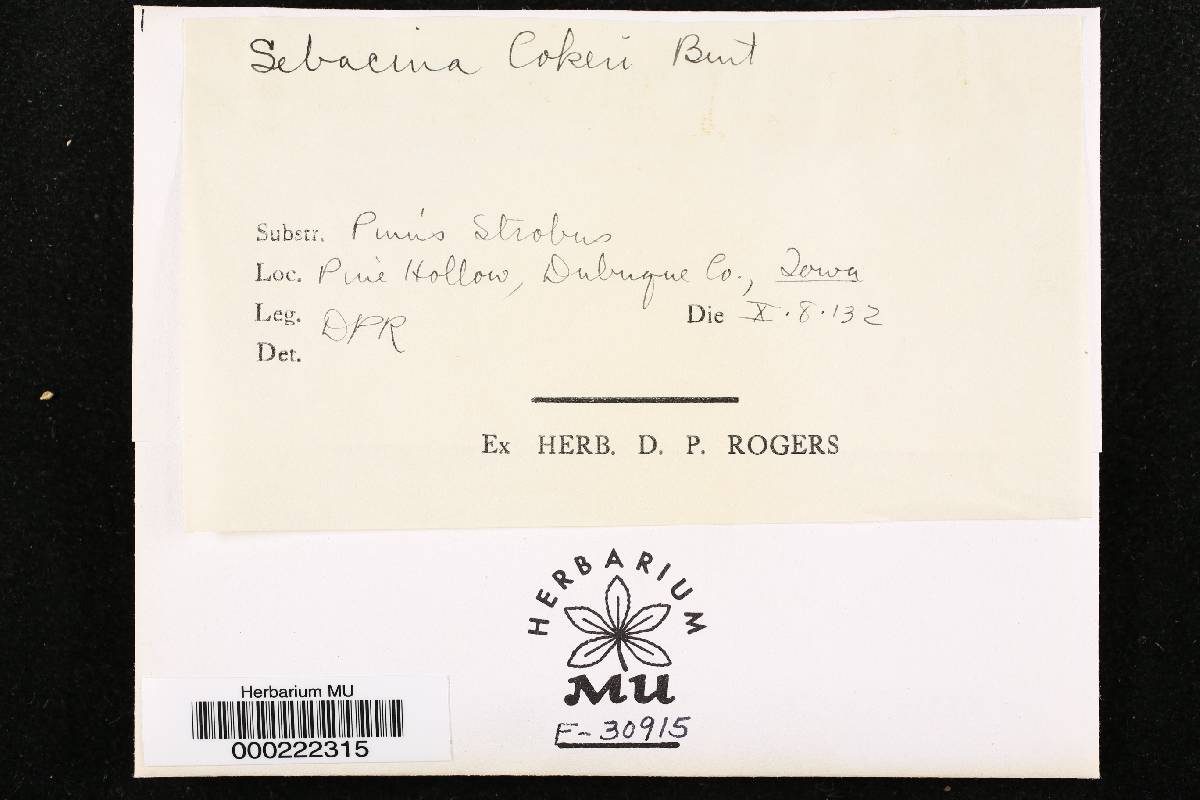 Sebacina Cokeri Burt
Substr. Pinus Strobus
Loc. Pine Hollow, Dubuque Co., Iowa
Leg. DPR
Die X.8.'32
Det.
Ex HERB. D. P. ROGERS
HERBARIUM
MU
F-30915
Herbarium MU
000222315